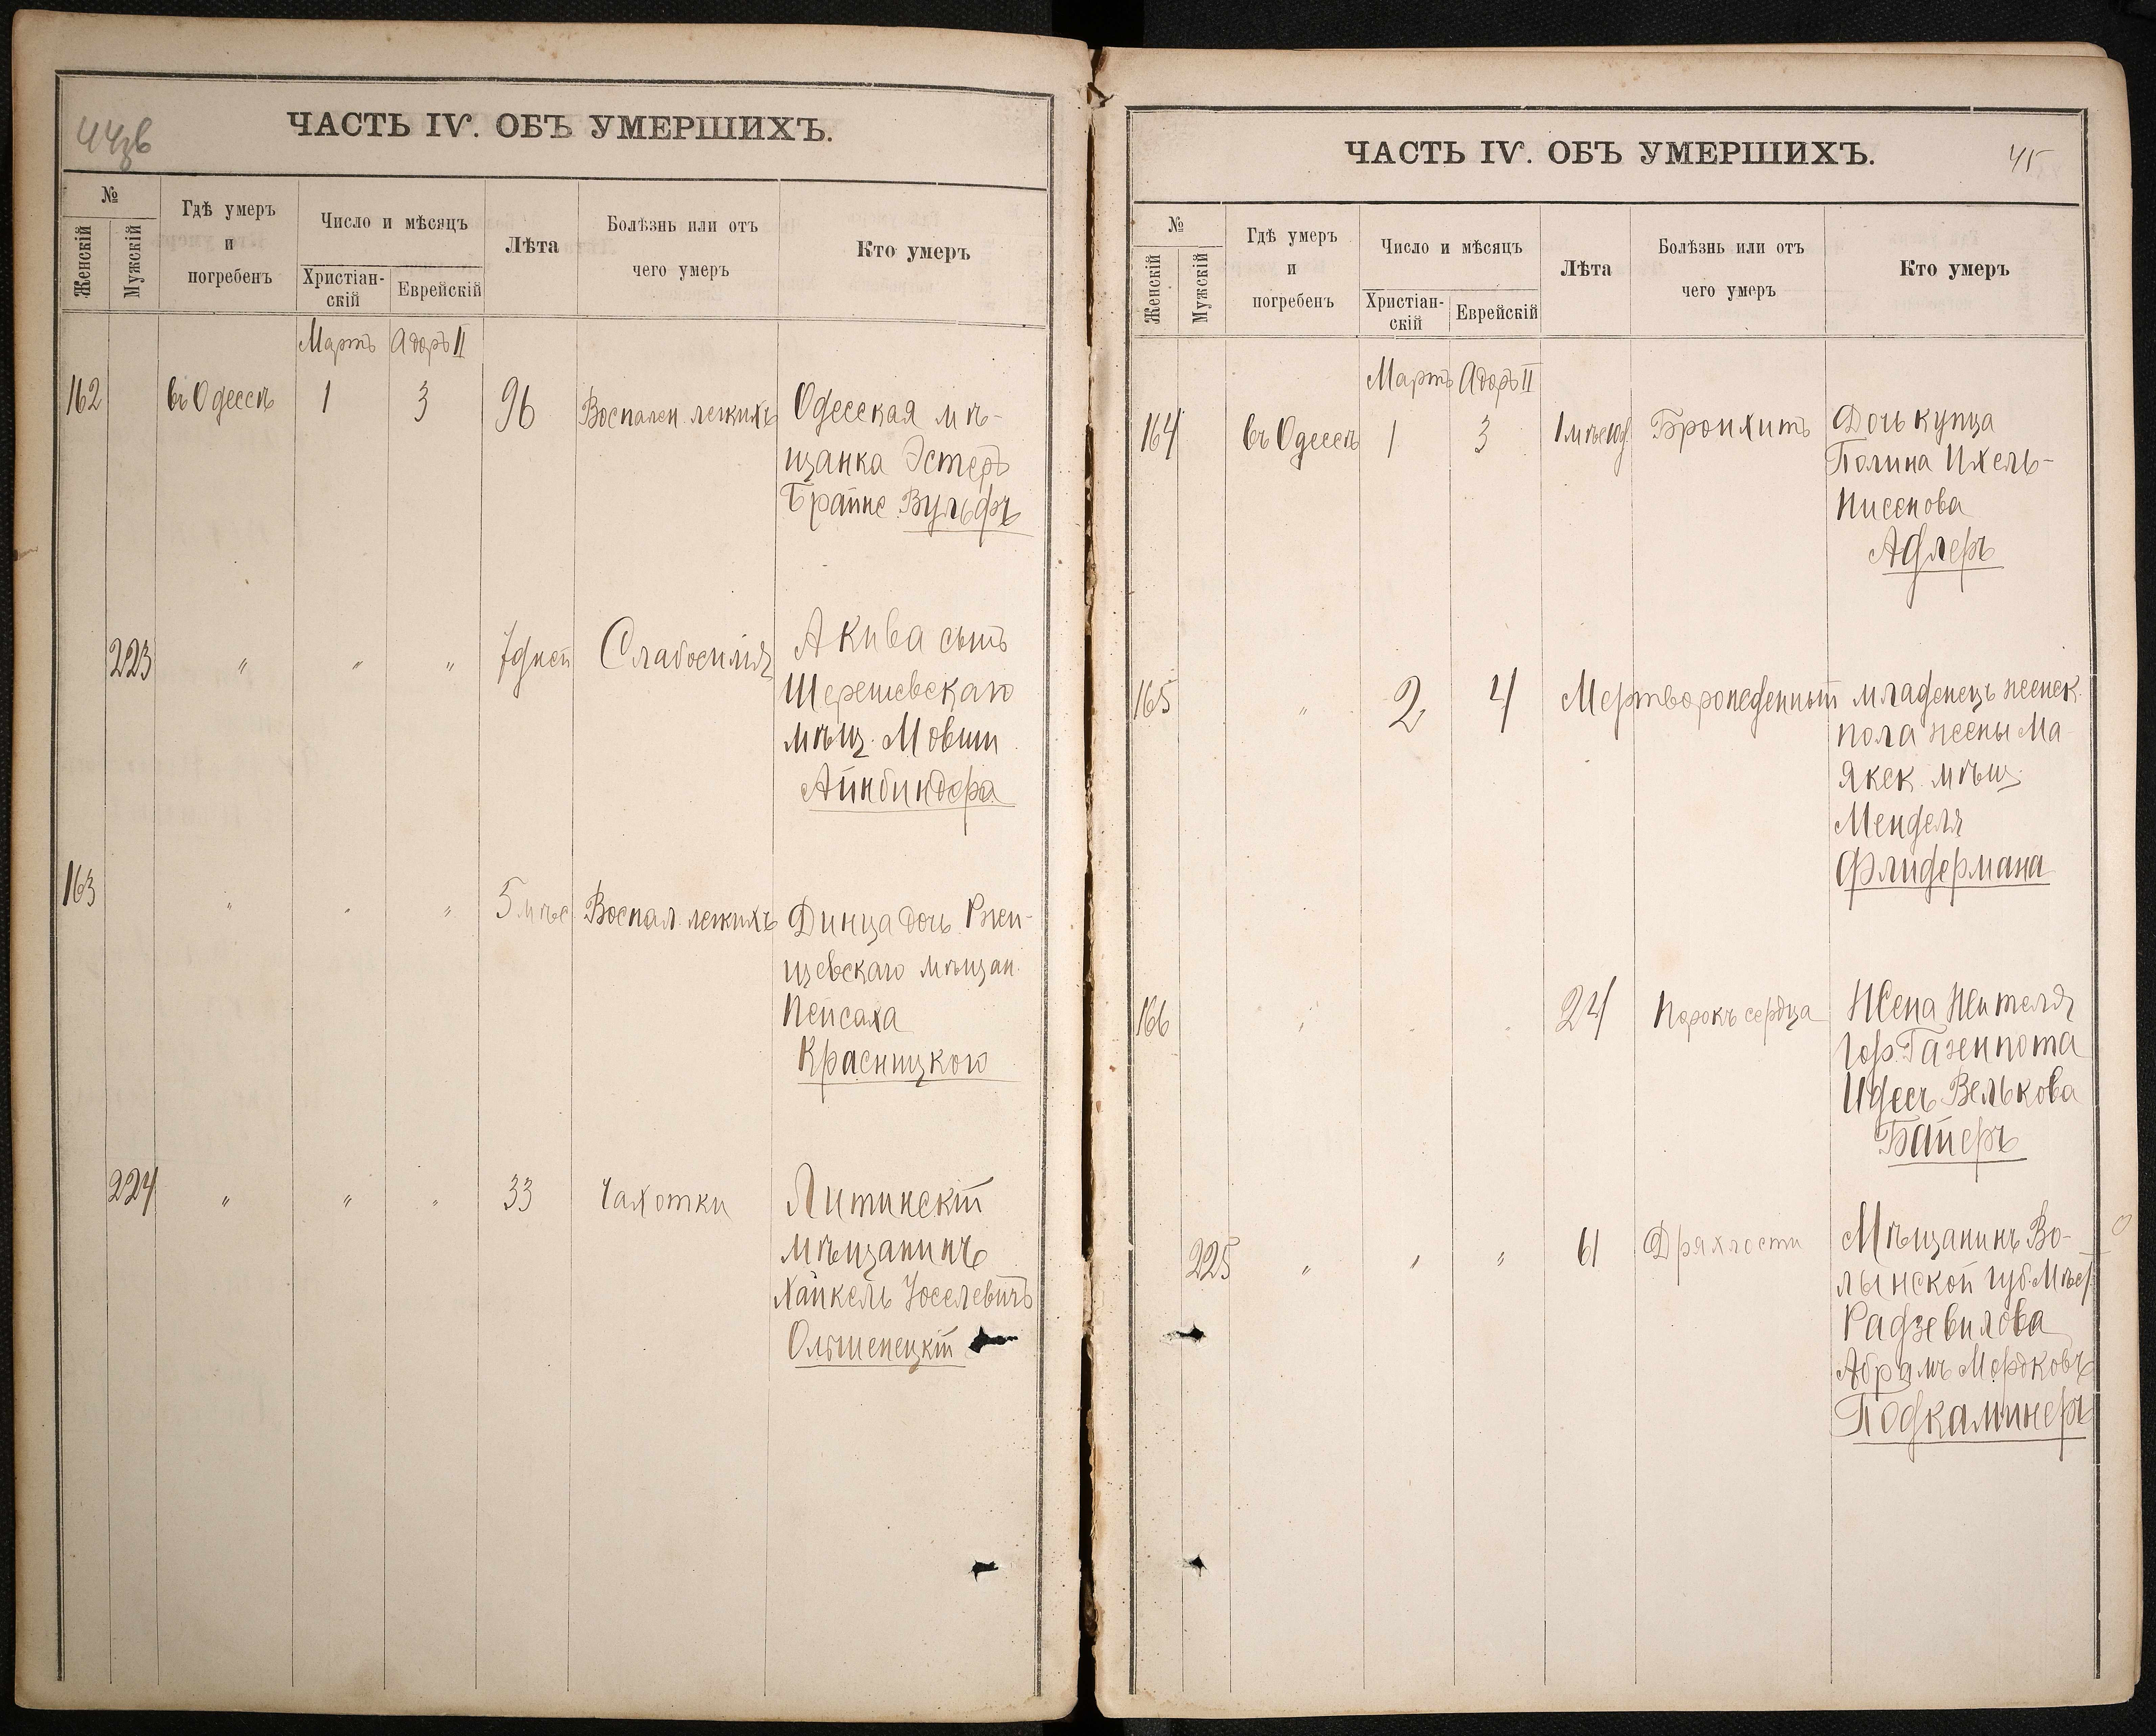 44зв
ЧАСТЬ IV. ОБЪ УМЕРШИХЪ.
№
Женскій
Мужскій
Гдѣ умеръ
и
погребенъ
Число и мѣсяцъ
Христіан-
скій
Еврейскій
Лѣта
Болѣзнь или отъ
чего умеръ
Кто умеръ
Мартъ Адоръ II
162 въ Одессѣ 1 3 96 Воспален. легкихъ Одесская мѣ-
щанка Эстеръ
Брайне Вульфъ
223 " " " 7 дней Слабосилія Акива сынъ
Шерешевскаго
мѣщ. Мовши
Айнбиндера
163 " " " 5 мѣс Воспал. легкихъ Динца дочь Ржи-
щевскаго мѣщан.
Пейсаха
Красницкого
224 " " " 33 Чахотки Литинскій
мѣщанинъ
Хайкель Іоселевичъ
Ольшенецкій
ЧАСТЬ IV. ОБЪ УМЕРШИХЪ.
45
№
Женскій
Мужскій
Гдѣ умеръ
и
погребенъ
Число и мѣсяцъ
Христіан-
скій
Еврейскій
Лѣта
Болѣзнь или отъ
чего умеръ
Кто умеръ
Мартъ Адоръ II
164 въ Одессѣ 1 3 Бронхитъ Дочь купца
Полина Ихель-
Нисенова
Адлеръ
165 " 2 4 Мертворожденный младенецъ женск.
пола жены Ма
якск. мѣщ.
Менделя
Флидермана
166 " " " 24 Порокъ сердца Жена жителя
гор. Газенпота
Идесъ Велькова
Байеръ
225 " " " 61 Дряхлости Мѣщанинъ Во-
лынской губ. Мѣст
Радзевилова
Абрамъ Мордковъ
Подкаминеръ